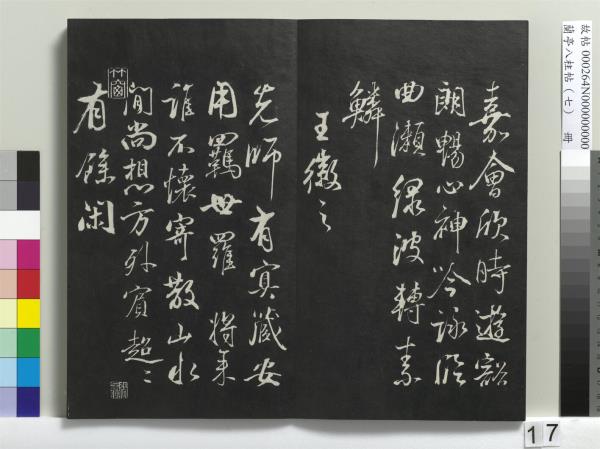 嘉會欣時遊豁
朗暢心神吟詠臨
曲瀨綠波轉素
鱗
王徽之
先師有冥藏安
用羈世羅
誰不懷寄散山水
間尚想方外賓超〻
有餘閑
竹窗
故帖 000264N000000000
蘭亭八柱帖（七） 冊
17